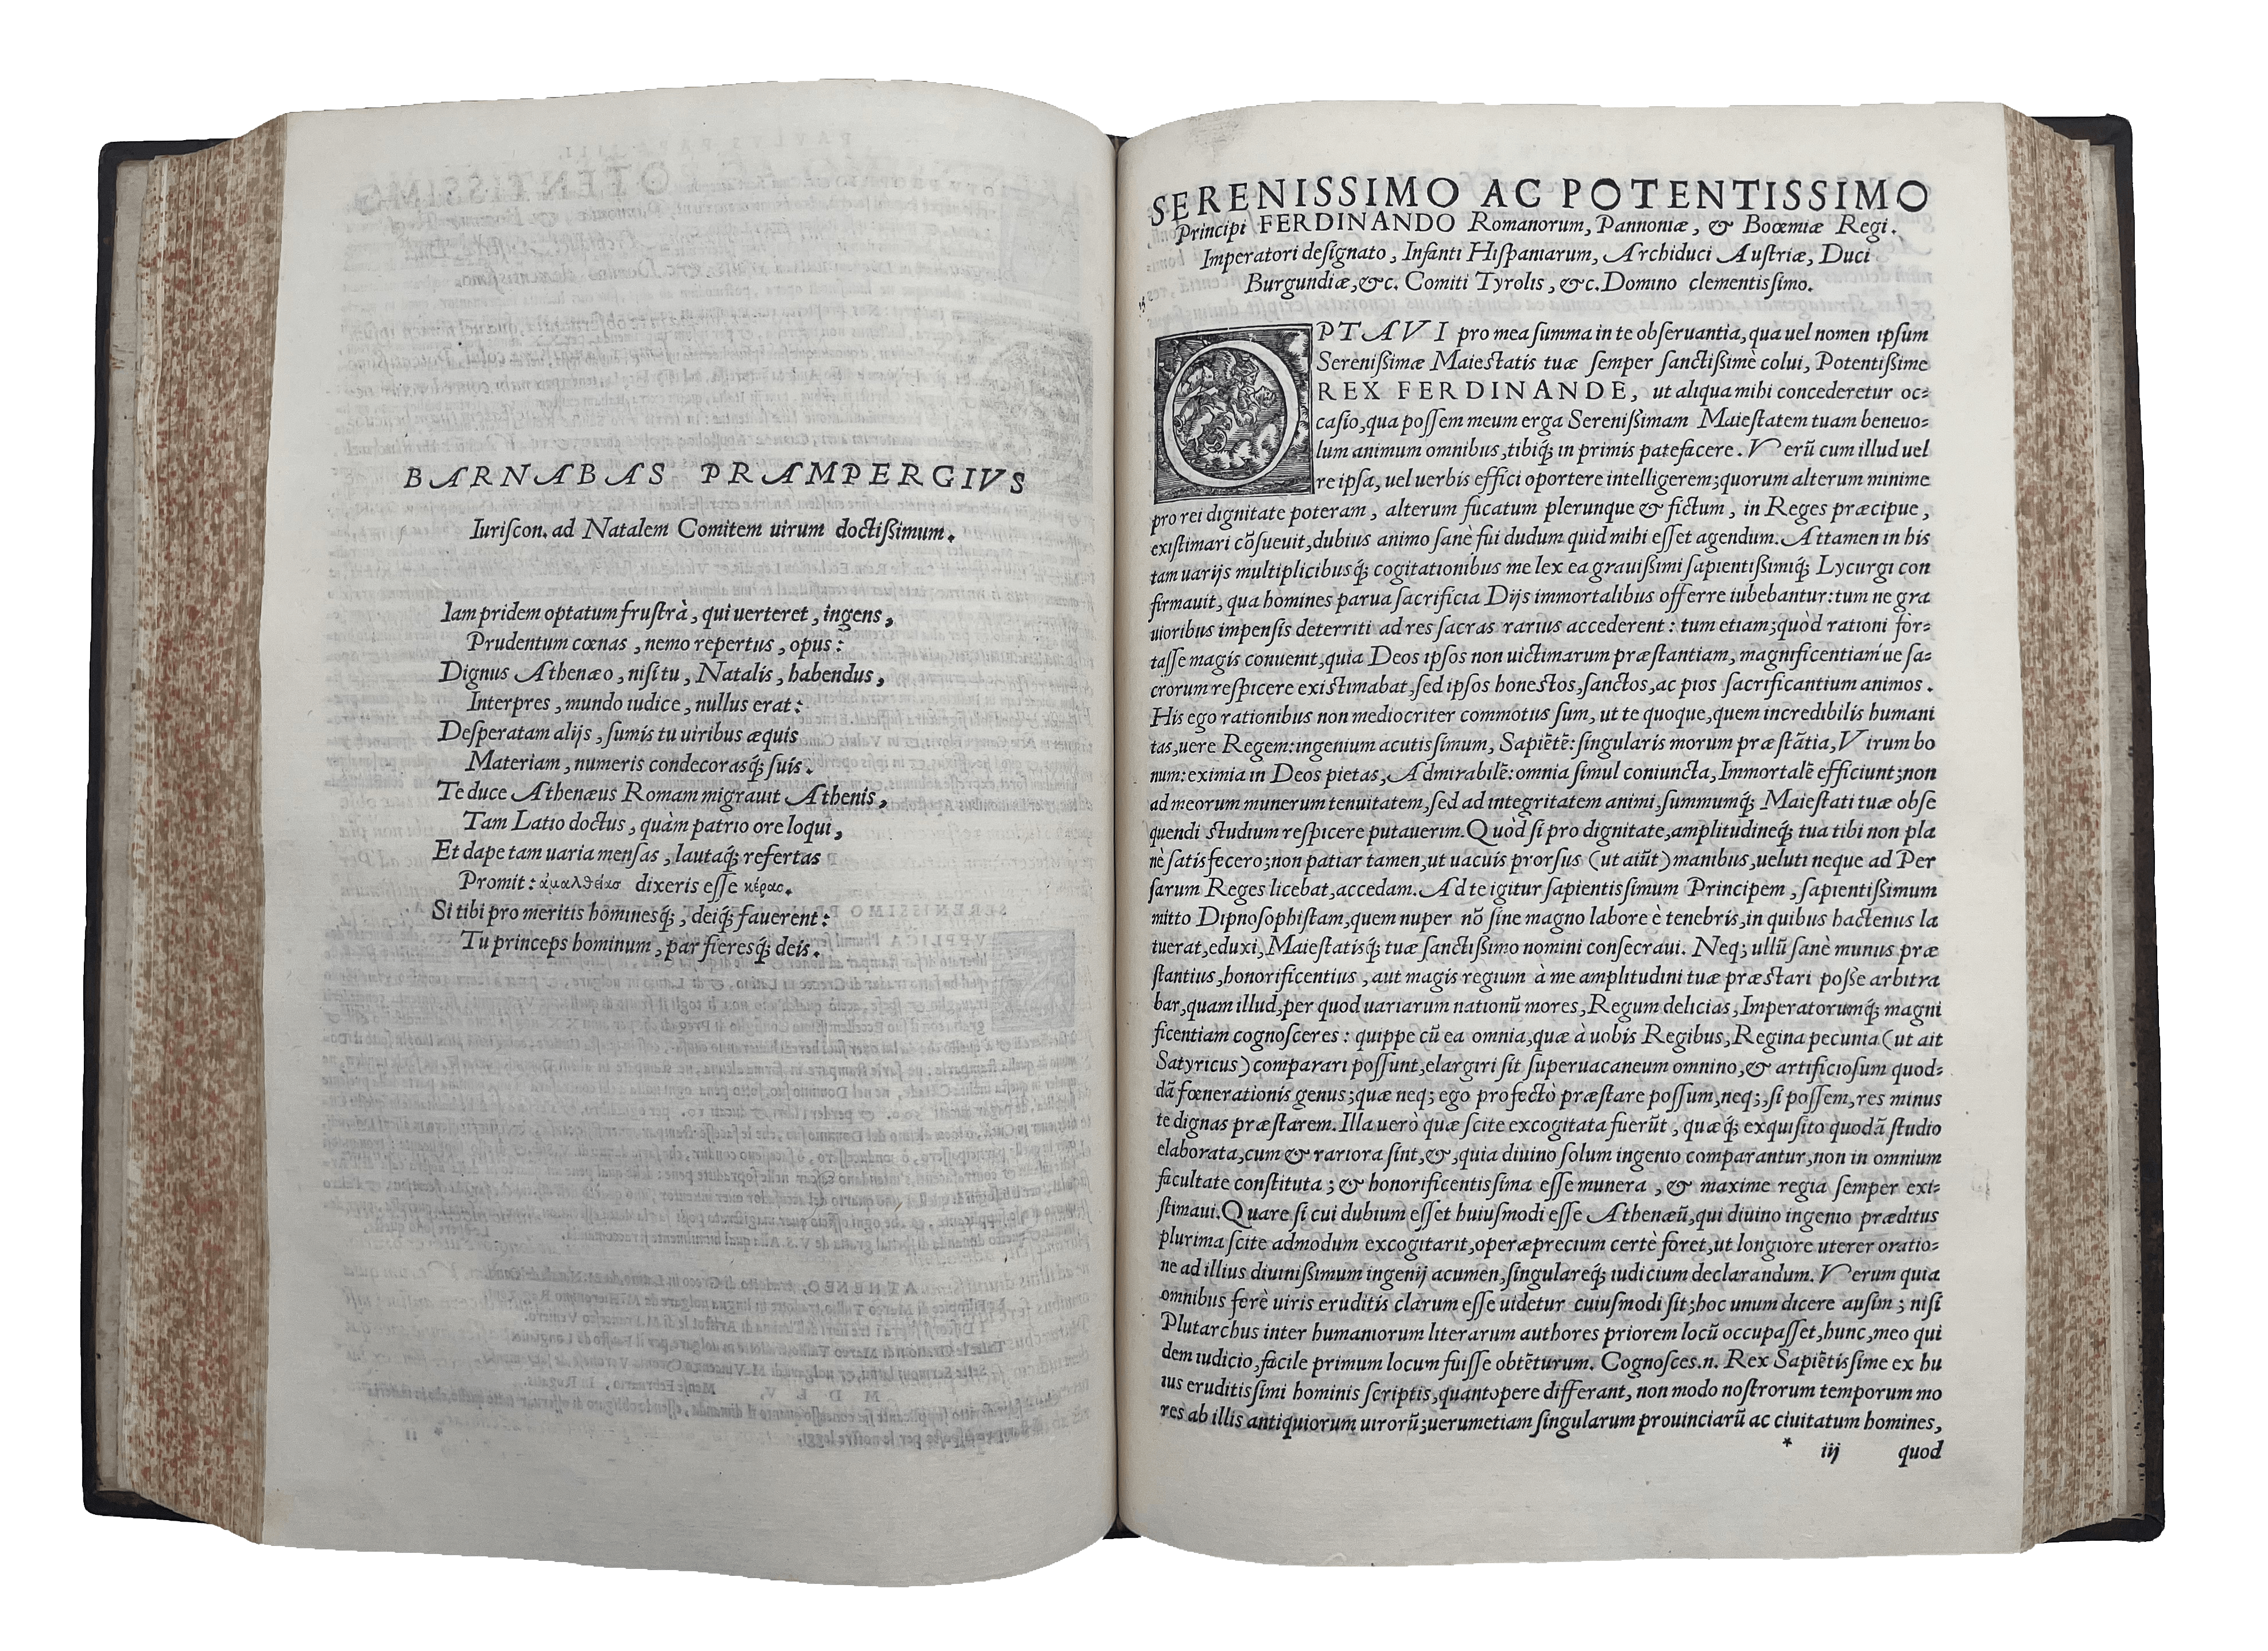 BARNABAS PRAMPERGIVS
Iuriſcon. ad Natalem Comitem uirum doctiſsimum.
Iam pridem optatum fruſtrà, qui uerteret, ingens,
Prudentum cœnas, nemo repertus, opus:
Dignus Athenæo, niſi tu, Natalis, habendus,
Interpres, mundo iudice, nullus erat:
Deſperatam alijs, ſumis tu uiribus æquis
Materiam, numeris condecorasq́; ſuis.
Te duce Athenæus Romam migrauit Athenis,
Tam Latio doctus, quàm patrio ore loqui,
Et dape tam uaria menſas, lautaq́; refertas
Promit: ἀμαλθείας dixeris eſſe κέρας.
Si tibi pro meritis hominesq́;, deiq́; fauerent:
Tu princeps hominum, par fieresq́; deis.
SERENISSIMO AC POTENTISSIMO
Principi FERDINANDO Romanorum, Pannoniæ, & Booemiæ Regi.
Imperatori deſignato, Infanti Hiſpaniarum, Archiduci Auſtriæ, Duci
Burgundiæ, &c. Comiti Tyrolis, &c. Domino clementiſsimo.
OPTAVI pro mea ſumma in te obſeruantia, qua uel nomen ipſum
Sereniſsimæ Maieſtatis tuæ ſemper ſanctiſsimè colui, Potentiſsime
REX FERDINANDE, ut aliqua mihi concederetur oc=
caſio, qua poſſem meum erga Sereniſsimam Maieſtatem tuam beneuo=
lum animum omnibus, tibiq́; in primis patefacere. Verũ cum illud uel
re ipſa, uel uerbis effici oportere intelligerem; quorum alterum minime
pro rei dignitate poteram, alterum fucatum plerunque & fictum, in Reges præcipue,
exiſtimari cõſueuit, dubius animo ſanè fui dudum quid mihi eſſet agendum. Attamen in his
tam uarijs multiplicibusq́; cogitationibus me lex ea grauiſsimi ſapientiſsimiq́; Lycurgi con
firmauit, qua homines parua ſacrificia Dijs immortalibus offerre iubebantur: tum ne gra
uioribus impenſis deterriti ad res ſacras rarius accederent: tum etiam; quòd rationi for=
taſſe magis conuenit, quia Deos ipſos non uictimarum præſtantiam, magnificentiam ue ſa=
crorum reſpicere exiſtimabat, ſed ipſos honeſtos, ſanctos, ac pios ſacrificantium animos.
His ego rationibus non mediocriter commotus ſum, ut te quoque, quem incredibilis humani
tas, uere Regem: ingenium acutiſsimum, Sapiẽtẽ: ſingularis morum præſtãtia, Virum bo
num: eximia in Deos pietas, Admirabilẽ: omnia ſimul coniuncta, Immortalẽ efficiunt; non
ad meorum munerum tenuitatem, ſed ad integritatem animi, ſummumq́; Maieſtati tuæ obſe
quendi ſtudium reſpicere putauerim. Quòd ſi pro dignitate, amplitudineq́; tua tibi non pla
nè ſatisfecero; non patiar tamen, ut uacuis prorſus (ut aiũt) manibus, ueluti neque ad Per
ſarum Reges licebat, accedam. Ad te igitur ſapientiſsimum Principem, ſapientiſsimum
mitto Dipnoſophiſtam, quem nuper nõ ſine magno labore è tenebris, in quibus hactenus la
tuerat, eduxi, Maieſtatisq́; tuæ ſanctiſsimo nomini conſecraui. Neq; ullũ ſanè munus præ
ſtantius, honorificentius, aut magis regium à me amplitudini tuæ præſtari poſſe arbitra
bar, quam illud, per quod uariarum nationũ mores, Regum delicias, Imperatorumq́; magni
ficentiam cognoſceres: quippe cũ ea omnia, quæ à uobis Regibus, Regina pecunia (ut ait
Satyricus) comparari poſſunt, elargiri ſit ſuperuacaneum omnino, & artificioſum quod=
dã fœnerationis genus; quæ neq; ego profectò præſtare poſſum, neq;, ſi poſſem, res minus
te dignas præſtarem. Illa uerò quæ ſcite excogitata fuerũt, quæq́; exquiſito quodã ſtudio
elaborata, cum & rariora ſint, &, quia diuino ſolum ingenio comparantur, non in omnium
facultate conſtituta; & honorificentiſsima eſſe munera, & maxime regia ſemper exi=
ſtimaui. Quare ſi cui dubium eſſet huiuſmodi eſſe Athenæũ, qui diuino ingenio præditus
plurima ſcite admodum excogitarit, operæprecium certè foret, ut longiore uterer oratio=
ne ad illius diuiniſsimum ingenij acumen, ſingulareq́; iudicium declarandum. Verum quia
omnibus ferè uiris eruditis clarum eſſe uidetur cuiuſmodi ſit; hoc unum dicere auſim; niſi
Plutarchus inter humaniorum literarum authores priorem locũ occupaſſet, hunc, meo qui
dem iudicio, facile primum locum fuiſſe obtẽturum. Cognoſces.n. Rex Sapiẽtiſsime ex hu
ius eruditiſsimi hominis ſcriptis, quantopere differant, non modo noſtrorum temporum mo
res ab illis antiquiorum uirorũ; uerumetiam ſingularum prouinciarũ ac ciuitatum homines,
* iij quod